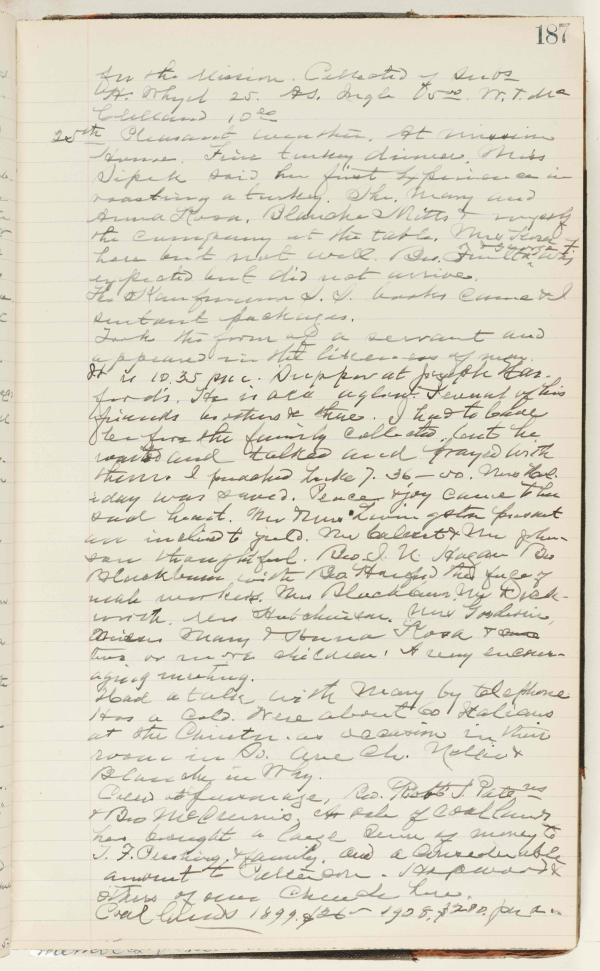 187
for the Mission. Collected of Subs
H. Whyel 25. AS. Ingle 5.00 W. T. Mc
Clelland 10 00
25th Pleasant weather. At Mission
Home. Fine turkey dinner. Miss
Sipek said her first experience in
roasting a turkey. She, Mary and
Anna Kosa, Blanche Mitts & myself
the company at the table. Mrs Kosa
here but not well. Bro. was
expected but did not arrive.
The Kaufmann S. S. books came & I
sent out packages.
Took the form of a servant and
appeared in the likeness of men.
It is 10.35 p.m. Supper at Joseph Har-
ford's. He is all aglow. Several of his
friends brothers & there. I had to leave
before the family collected, but he
waited and talked and prayed with
them. I preached Luke 7. 36-50. Mrs Hol-
iday was saved. Peace & joy came to her
sad heart. Mr & Mrs Livingston present
an inclined to yield. Mr Calvert & Mr John-
son thoughtful. Bro. J. N. Hagan Bro
Blackburn with Bro Harford the
workers. Mrs Blackburn, Duck-
worth, Hutchinson, Mrs Goodwin,
Mary & Anna Kosa &
two or more children. A very encour-
aging meeting.
Had a talk with Mary by telephone
Has a cold. Were about 60 Italians
at the Christmas occasion in their
room in So. Ave Ch. Nellie &
Blanche in Way.
Robt J.
& Bro McCrennis. A sale of coal lands
has brought a large sum of money to
J. F. & family, and a considerable
amount to Hopwood &
others of our Church here.
Coal lands 1899. $26- 1908, $280. per a.